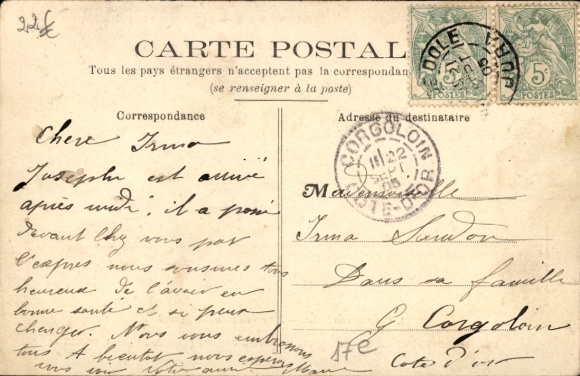 CARTE POSTALE
Tous les pays étrangers n'acceptent pas la correspondance
(se renseigner à la poste)
Correspondance
Adresse du destinataire
5c
POSTES
5c
POSTES
DOLE
JURA
CORGOLOIN
22
SEPT
05
CÔTE-D'OR
Chere Irma
Joseph est arrivé
après midi, il a passé
devant chez vous par
l'express nous sommes tous
heureux de l'avoir en
bonne santé et si peu
changer. Nous vous embrassons
tous A bientot nous esperons
Mademoiselle
Irma
Dans sa famille
G Corgoloin
Cote d'or
17€